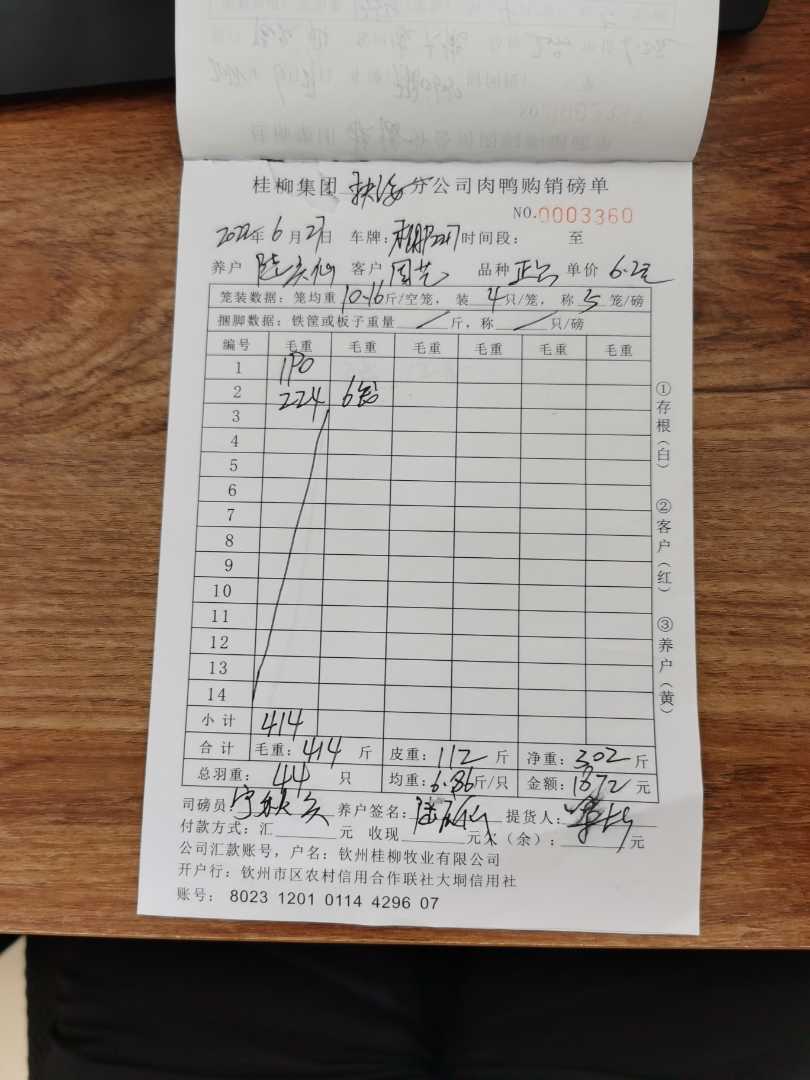 桂柳集团 扶绥 分公司肉鸭购销磅单
NO.0003360
2022年6月27日 车牌: 时间段: 至
养户 客户 周艺 品种 单价 6.2元
笼装数据: 笼均重 10.16 斤/空笼, 装 4 只/笼, 称 5 笼/磅
捆脚数据: 铁筐或板子重量 / 斤, 称 / 只/磅
编号 毛重 毛重 毛重 毛重 毛重 毛重
1 190
2 224 6
3
4
5
6
7
8
9
10
11
12
13
14
小计 414
合计 毛重: 414 斤 皮重: 112 斤 净重: 302 斤
总羽重: 44 只 均重: 6.86 斤/只 金额: 1872 元
司磅员: 养户签名: 提货人:
付款方式: 汇 元 收现 元欠(余): 元
公司汇款账号, 户名: 钦州桂柳牧业有限公司
开户行: 钦州市区农村信用合作联社大垌信用社
账号: 8023 1201 0114 4296 07
①存根(白) ②客户(红) ③养户(黄)